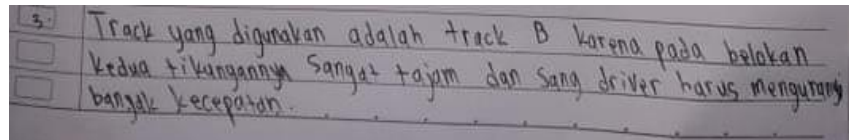 3. Track yang digunakan adalah track B karena pada belokan
kedua tikungannya sangat tajam dan sang driver harus mengurangi
banyak kecepatan.